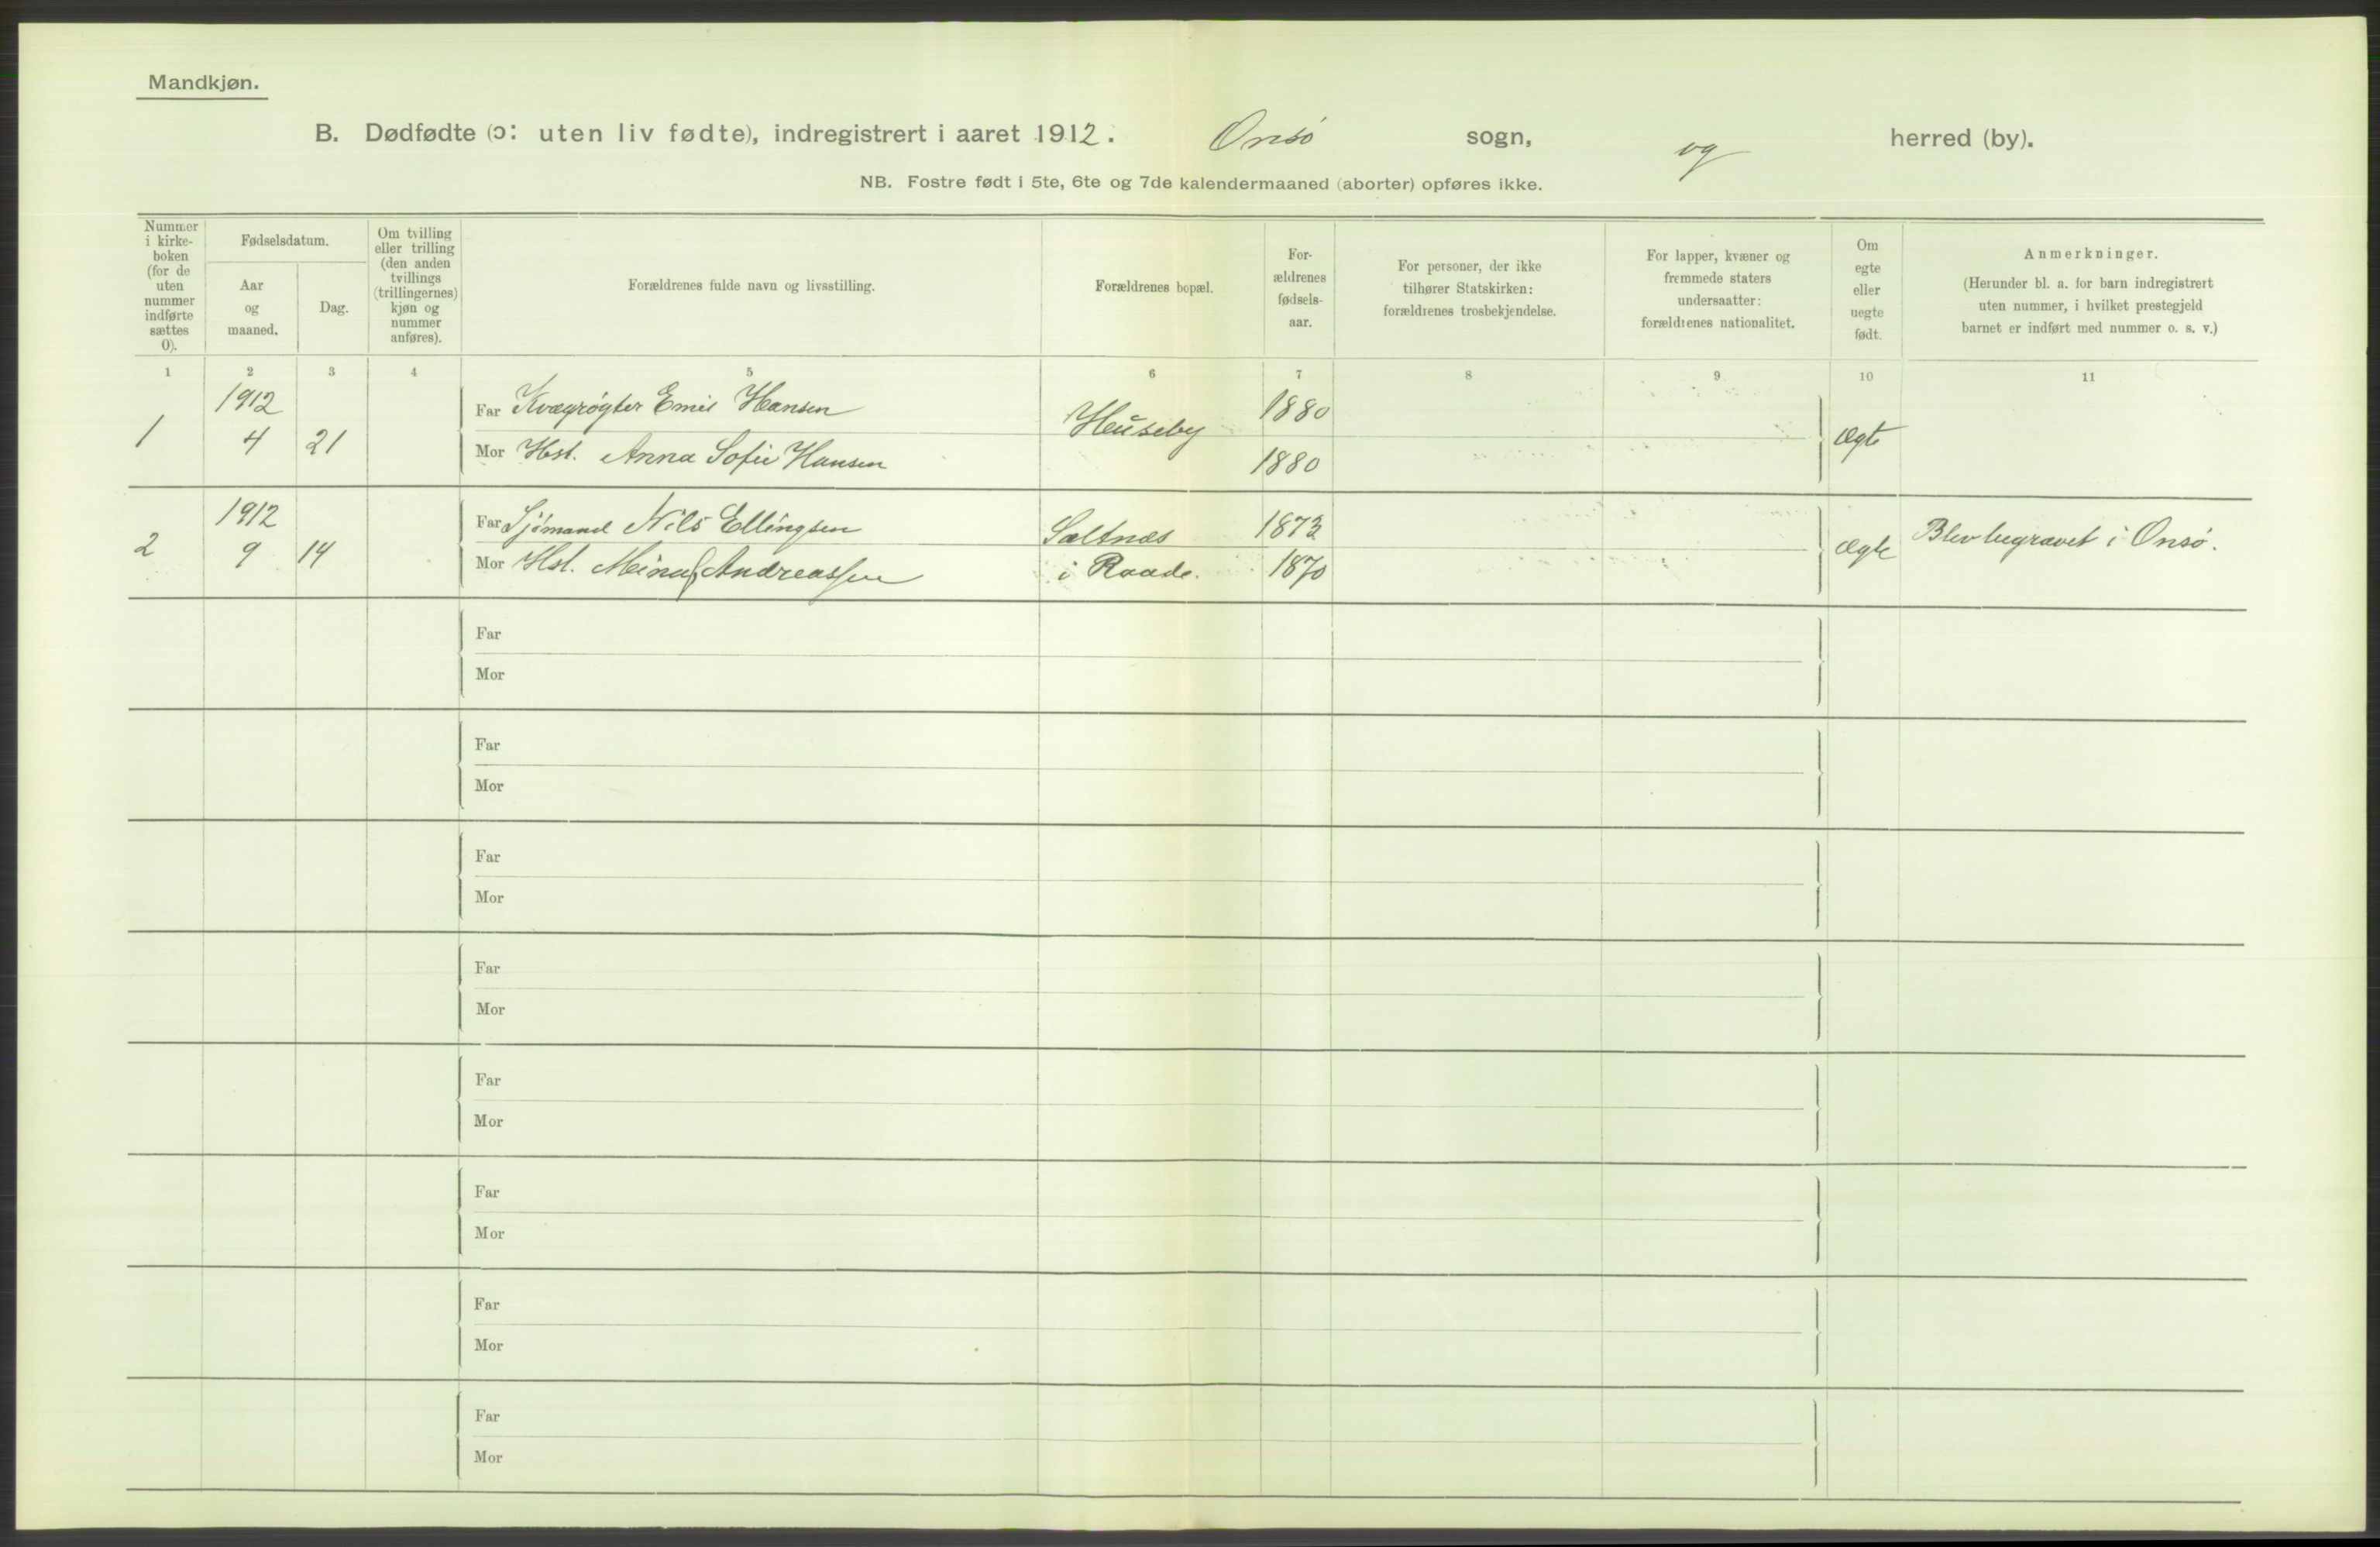 Mandkjøn.
B. Dødfødte (ɔ: uten liv fødte), indregistrert i aaret 1912. Onsø sogn, og herred (by).
NB. Fostre født i 5te, 6te og 7de kalendermaaned (aborter) opføres ikke.
Nummer
i kirke-
boken
(for de
uten
nummer
indførte
sættes
0).
Fødselsdatum.
Aar
og
maaned.
Dag.
Om tvilling
eller trilling
(den anden
tvillings
(trillingernes)
kjøn og
nummer
anføres).
Forældrenes fulde navn og livsstilling.
Forældrenes bopæl.
For-
ældrenes
fødsels-
aar.
For personer, der ikke
tilhører Statskirken:
forældrenes trosbekjendelse.
For lapper, kvæner og
fremmede staters
undersaatter:
forældrenes nationalitet.
Om
egte
eller
uegte
født.
Anmerkninger.
(Herunder bl. a. for barn indregistrert
uten nummer, i hvilket prestegjeld
barnet er indført med nummer o. s. v.)
1 2 3 4 5 6 7 8 9 10 11
1912
Far Kvægrøgter Emil Hansen 1880
1 4 21 Huseby ægte
Mor Hst. Anna Sofie Hansen 1880
1912
Far Sjømand Nils Ellingsen Saltnæs 1873
2 9 14 ægte Blev begravet i Onsø.
Mor Hst. Mina Andreassen i Raade. 1870
Far
Mor
Far
Mor
Far
Mor
Far
Mor
Far
Mor
Far
Mor
Far
Mor
Far
Mor